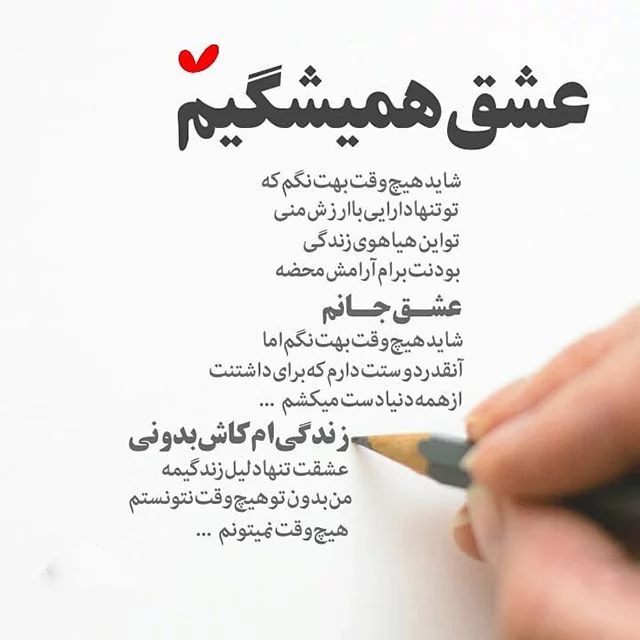 عشق همیشگیم
شاید هیچ وقت بهت نگم که
تو تنها دارایی با ارزش منی
تو این هیاهوی زندگی
بودنت برام آرامش محضه
عشـــق جـــانم
شاید هیچ وقت بهت نگم اما
آنقدر دوستت دارم که برای داشتنت
از همه دنیا دست میکشم ...
زندگی ام کاش بدونی
عشقت تنها دلیل زندگیمه
من بدون تو هیچ وقت نتونستم
هیچ وقت نمیتونم ...